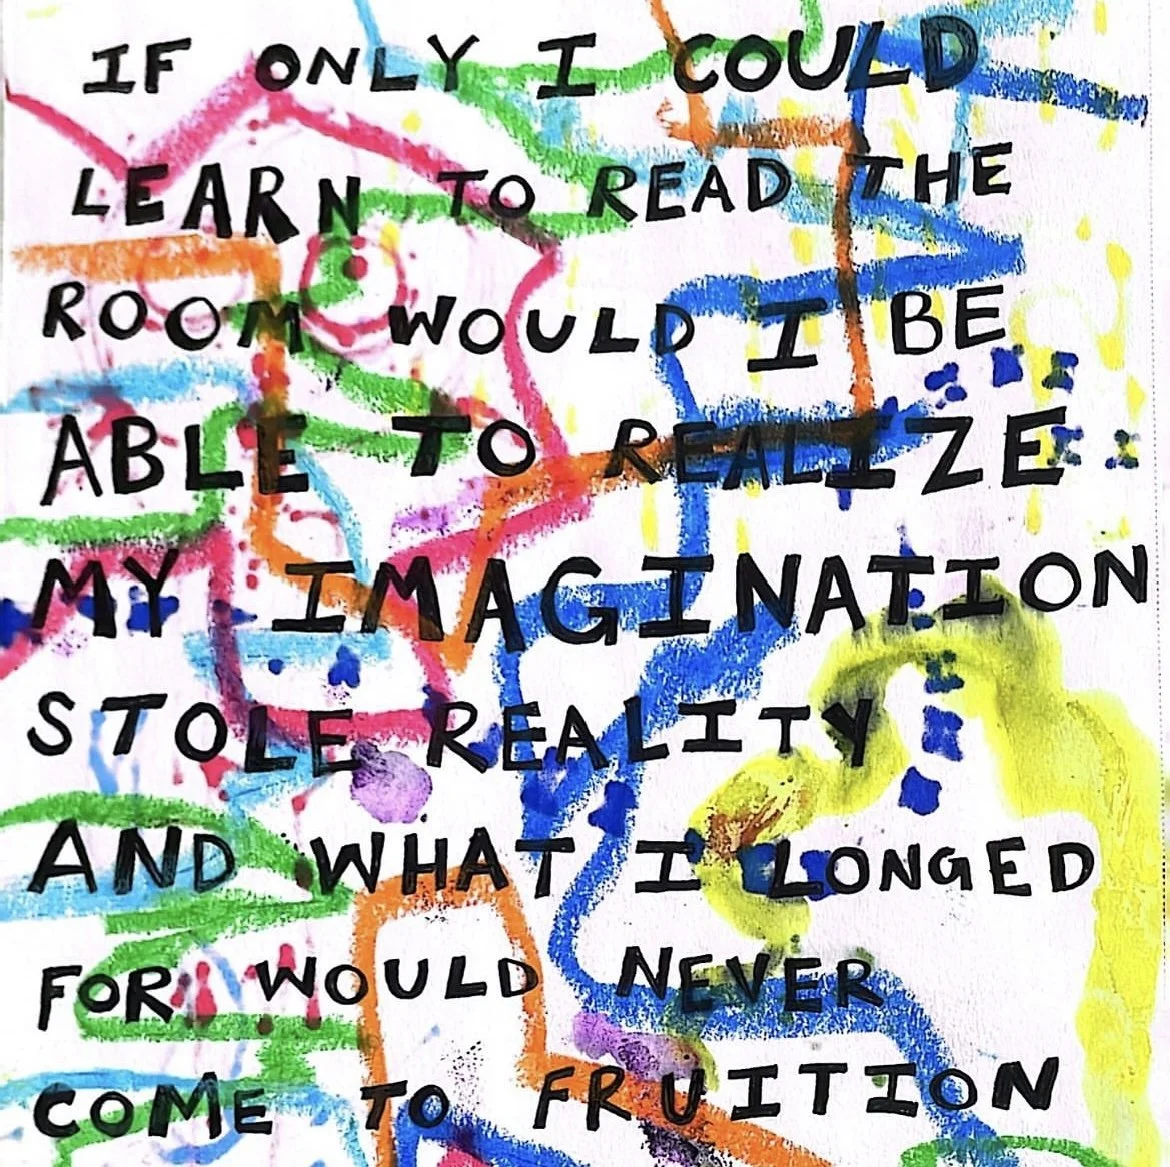 IF ONLY I COULD
LEARN TO READ THE
ROOM WOULD I BE
ABLE TO REALIZE
MY IMAGINATION
STOLE REALITY
AND WHAT I LONGED
FOR WOULD NEVER
COME TO FRUITION